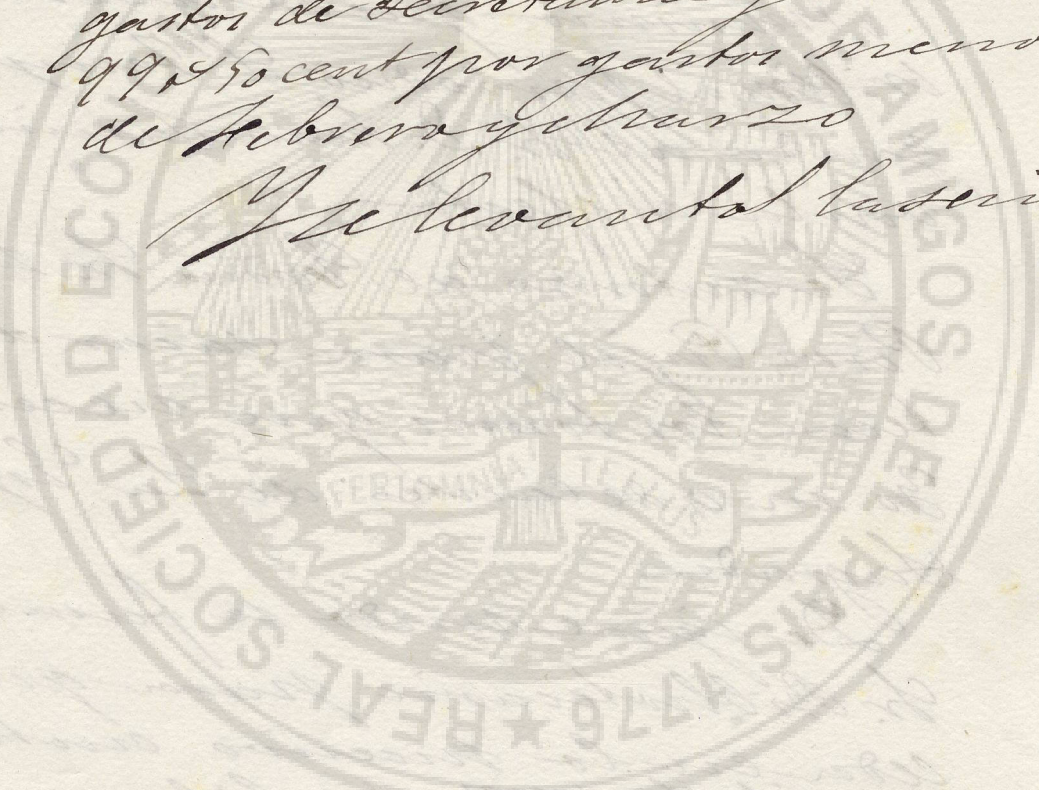 gastos de Secretaria y
99 p 50 cent por gastos meno
de Febrero y Marzo
Y se levantó la sesi
REAL SOCIEDAD ECON
DE AMIGOS DEL PAIS 1776 ★
FERTUR OMNIA TELLUS